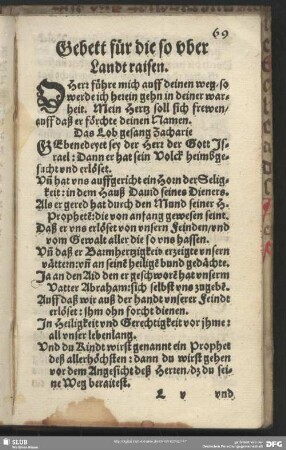 69
Gebett für die so vber
Landt raisen.
O Herr führe mich auff deinen weg, so
werde ich herein gehn in deiner war-
heit. Mein Hertz soll sich frewen/
auff daß er förchte deinen Namen.
Das Lob gesang Zacharie
GEbenedeyet sey der Herr der Gott Js-
rael: Dann er hat sein Volck heimbge-
sucht vnd erlöset.
Vñ hat vns auffgericht ein Horn der Selig-
keit: in dem Hauß Dauid seines Dieners.
Als er gered hat durch den Mund seiner H.
Prophetē: die von anfang gewesen seint.
Daß er vns erlöset von vnsern Feinden/vnd
vom Gewalt aller die so vns hassen.
Vñ daß er Barmhertzigkeit erzeigte vnsern
vättern: vñ an seinē heiligē bund gedächte.
Ja an den Aid den er geschworē hat vnserm
Vatter Abraham: sich selbst vns zugebē.
Auff daß wir auß der handt vnserer Feindt
erlöset: jhm ohn forcht dienen.
Jn Heiligkeit vnd Gerechtigkeit vor jhme:
all vnser lebenlang.
Vnd du Kindt wirst genannt ein Prophet
deß allerhöchsten: dann du wirst gehen
vor dem Angesicht deß Herten/dz du sei-
ne Weg beraitest.
L v vnd